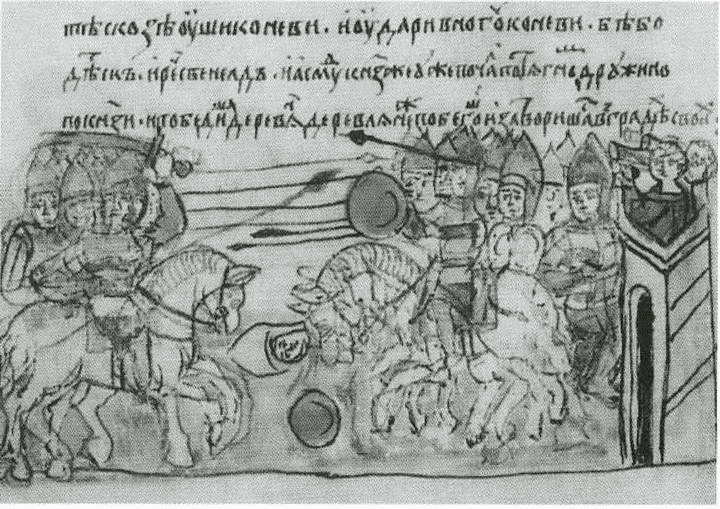 тѣ скозѣ оуши коневи · и оудари в ногꙋ коневи · бѣ бо
дѣтескъ · и рⷱе свенелдъ · и асмуⷣ кн҃зь оуже почаⷧ потѧгнѣⷨ дрꙋжино
по кн҃зи · и победиша деревлѧⷩ деревлѧнѣ же побегоша и затворишаⷭ в градѣⷯ своиⷯ ·